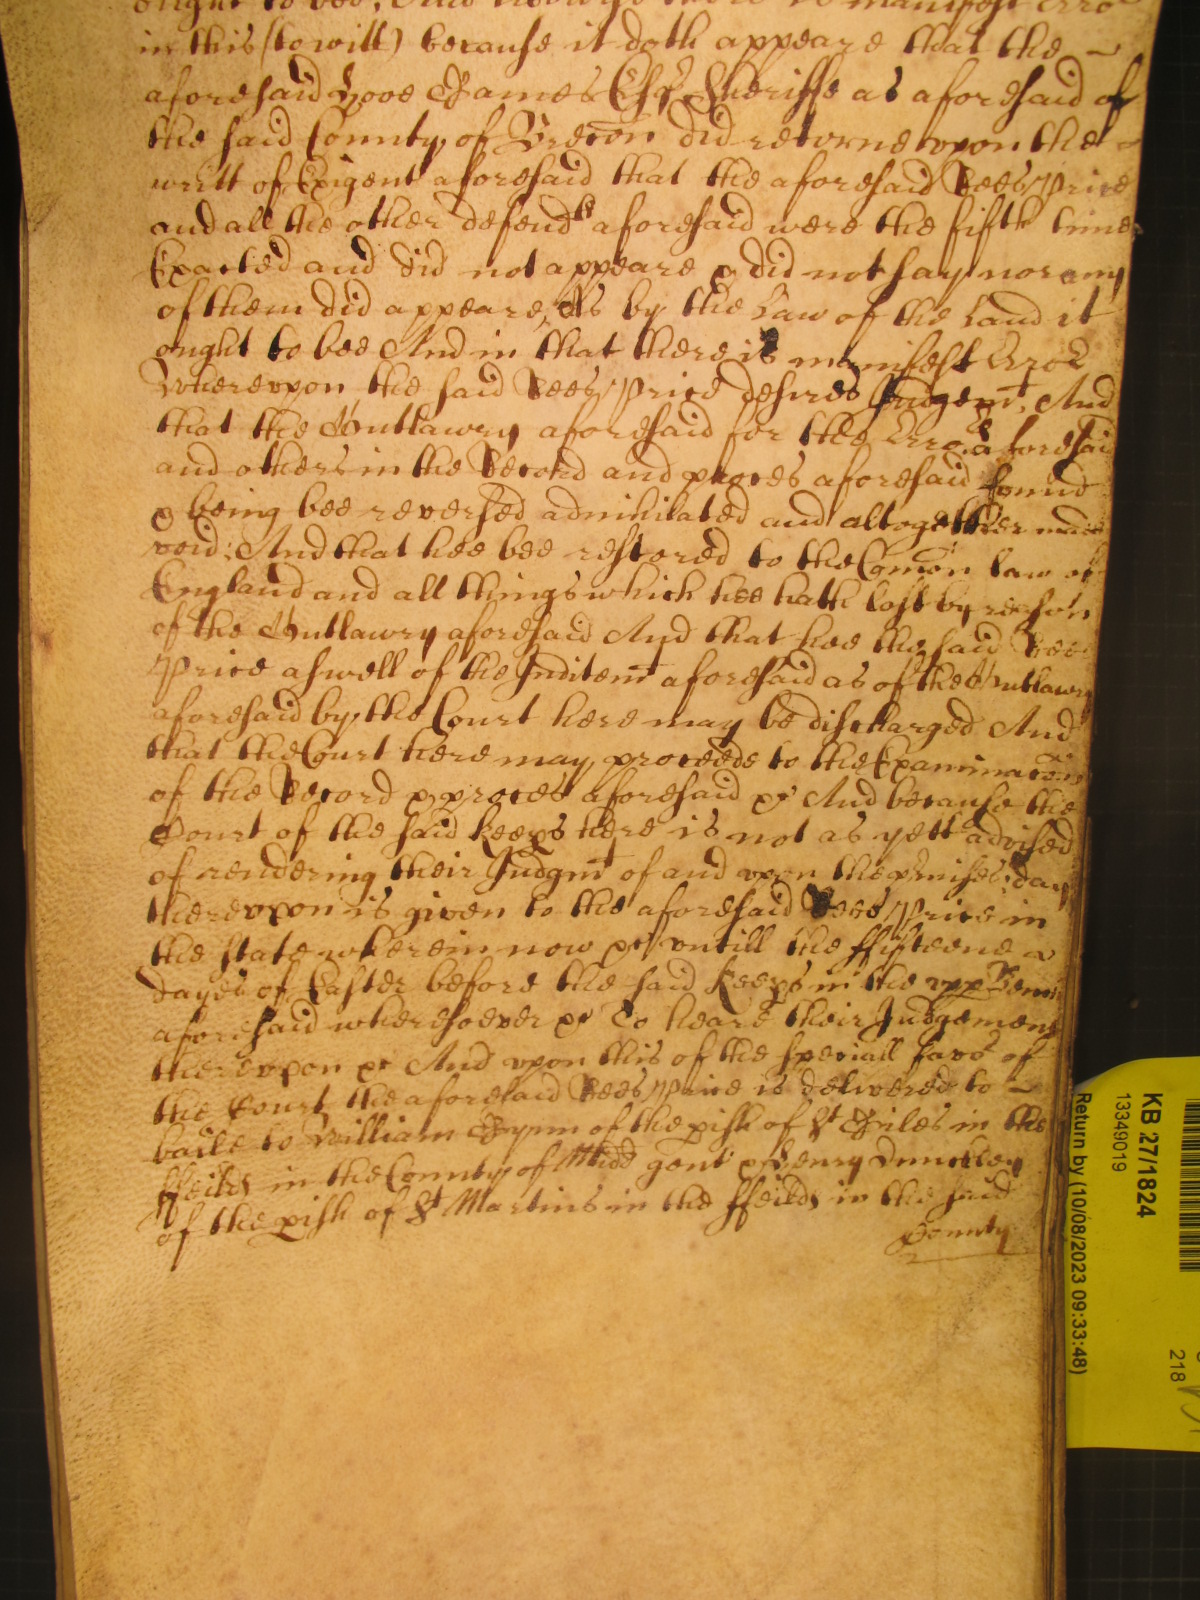 ought to bee, And likewise there is manifest Erro
in this (to witt) because it doth appeare that the ~
aforesaid James Esqr Sheriffe as aforesaid of
the said County of Brecon did retorne vpon the
writt of Exigent aforesaid that the aforesaid Rees Price
and all the other defendts aforesaid were the fifth time
Exacted and did not appeare & did not say nor any
of them did appeare, As by the Law of the Land it
ought to bee And in that there is manifest Error
Wherevpon the said Rees Price desires Judgemt, And
that the Outlawry aforesaid for the Erro aforesaid
and others in the Record and proces aforesaid found
& being bee reversed adnihilated and altogether made
void: And that hee bee restored to the Comon law of
England and all things which hee hath lost by reason
of the Outlawry aforesaid And that hee the said Rees
Price aswell of the Inditemt aforesaid as of the Outlawry
aforesaid by the Court here may be discharged And
that the Court here may proceede to the Examinacon
of the Record & proces aforesaid &c And because the
Court of the said keeps here is not as yett advised
of rendering their Judgmt of and vpon the pmises: day
therevpon is given to the aforesaid Rees Price in
the state wherein now &c vntill the ffifteene ~
dayes of Easter before the said keeps in the vpp Bench
aforesaid wheresoever &c To heare their Judgement
therevpon &c And vpon this of the speciall favor of
the Court the aforesaid Rees Price is delivered to ~
baile to William Gynn of the pish of St Giles in the
ffeilds in the County of Midd gent & Henry Dunckley
of the pish of St Martins in the ffeilds in the said
County
KB 27/1824
13349019
Return by (10/08/2023 09:33:48)
218